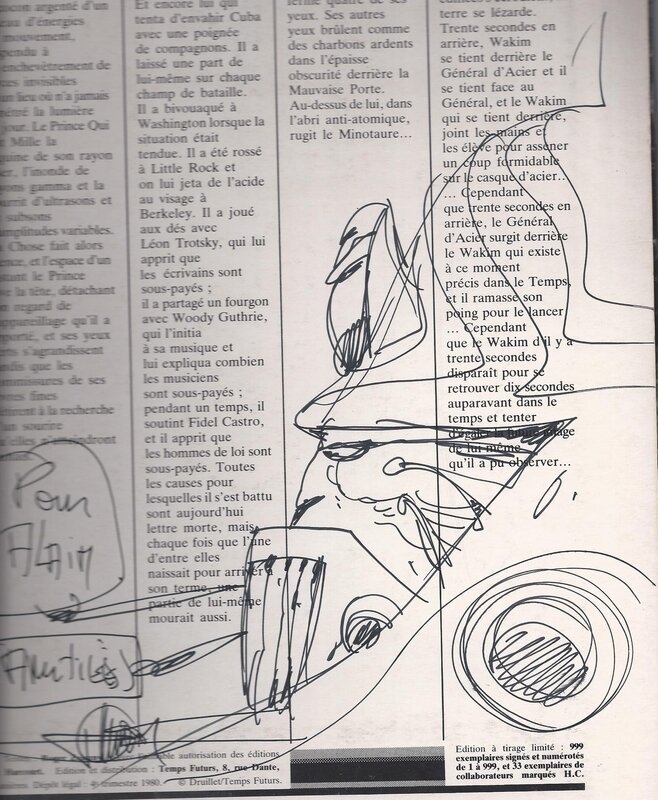 un d'énergies
mouvement,
invisibles
un lieu où n'a jamais
la lumière
jour. Le Prince Qui
Mille la
de son rayon
l'inonde de
gamma et la
d'ultrasons et
subsons
amplitudes variables.
Chose fait alors
et l'espace d'un
le Prince
la tête, détachant
regard de
qu'il a
et ses yeux
s'agrandissent
que les
de ses
fines
à la recherche
sourire
qu'elles
Et encore lui qui
tenta d'envahir Cuba
avec une poignée
de compagnons. Il a
laissé une part de
lui-même sur chaque
champ de bataille.
Il a bivouaqué à
Washington lorsque la
situation était
tendue. Il a été rossé
à Little Rock et
on lui jeta de l'acide
au visage à
Berkeley. Il a joué
aux dés avec
Léon Trotsky, qui lui
apprit que
les écrivains sont
sous-payés ;
il a partagé un fourgon
avec Woody Guthrie,
qui l'initia
à sa musique et
lui expliqua combien
les musiciens
sont sous-payés ;
pendant un temps, il
soutint Fidel Castro,
et il apprit que
les hommes de loi sont
sous-payés. Toutes
les causes pour
lesquelles il s'est battu
sont aujourd'hui
lettre morte, mais
chaque fois que l'une
d'entre elles
naissait pour arriver à
son terme, une
partie de lui-même
mourait aussi.
yeux. Ses autres
yeux brûlent comme
des charbons ardents
dans l'épaisse
obscurité derrière la
Mauvaise Porte.
Au-dessus de lui, dans
l'abri anti-atomique,
rugit le Minotaure...
terre se lézarde.
Trente secondes en
arrière, Wakim
se tient derrière le
Général d'Acier et il
se tient face au
Général, et le Wakim
qui se tient derrière,
joint les mains et
les élève pour asséner
un coup formidable
sur le casque d'acier...
... Cependant
que trente secondes en
arrière, le Général
d'Acier surgit derrière
le Wakim qui existe
à ce moment
précis dans le Temps,
et il ramasse son
poing pour le lancer
... Cependant
que le Wakim d'il y a
trente secondes
disparaît pour se
retrouver dix secondes
auparavant dans le
temps et tenter
de lui-même
qu'il a pu observer...
Pour
ALAIN
Amitiés
autorisation des éditions
Edition et distribution : Temps Futurs, 8, rue Dante,
Dépôt légal : 4e trimestre 1980. © Druillet/Temps Futurs.
Edition à tirage limité : 999
exemplaires signés et numérotés
de 1 à 999, et 33 exemplaires de
collaborateurs marqués H.C.